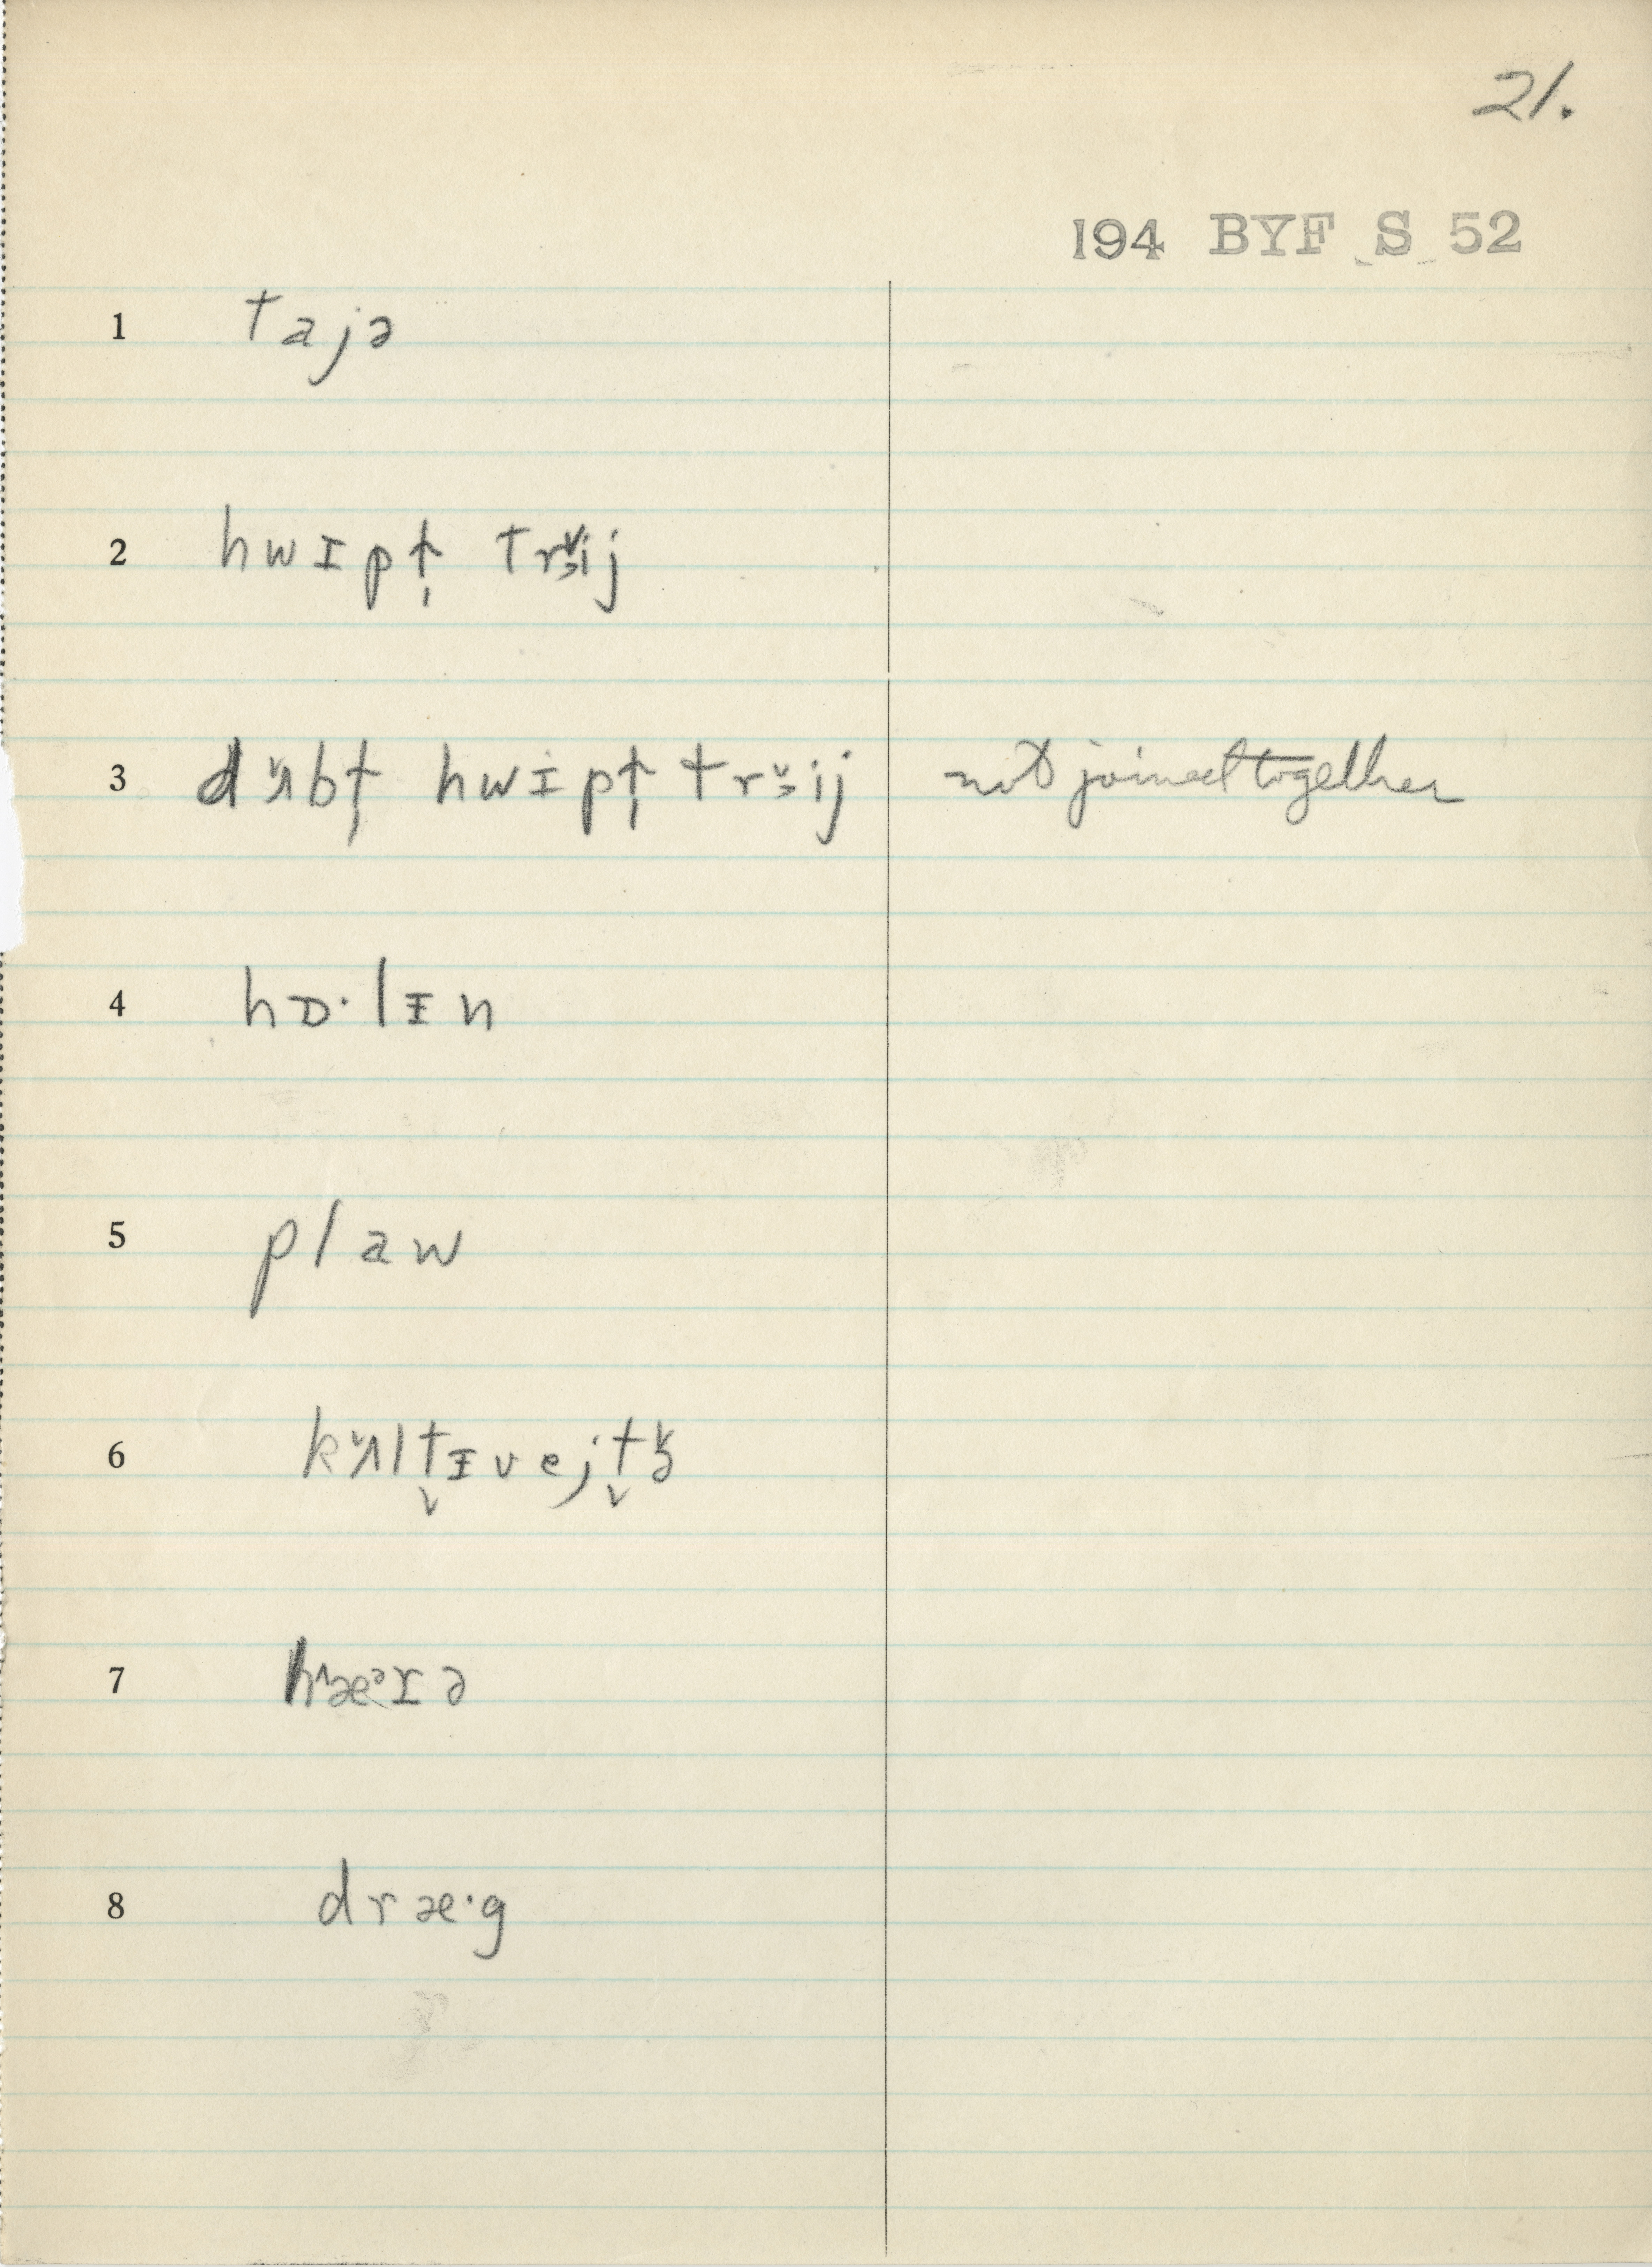 21.
194 BYF S 52
1 tajə
2 hwɪpt̩ trɜ̌ij
3 dʌ̌bt̩ hwɪpt̩ trɜ̌ij not joined together
4 hɒ·lɪ̵n
5 plaw
6 kʌ̌lt̬ɪ̵vejt̬ɚ
7 hæᵊrə
8 dræ·g